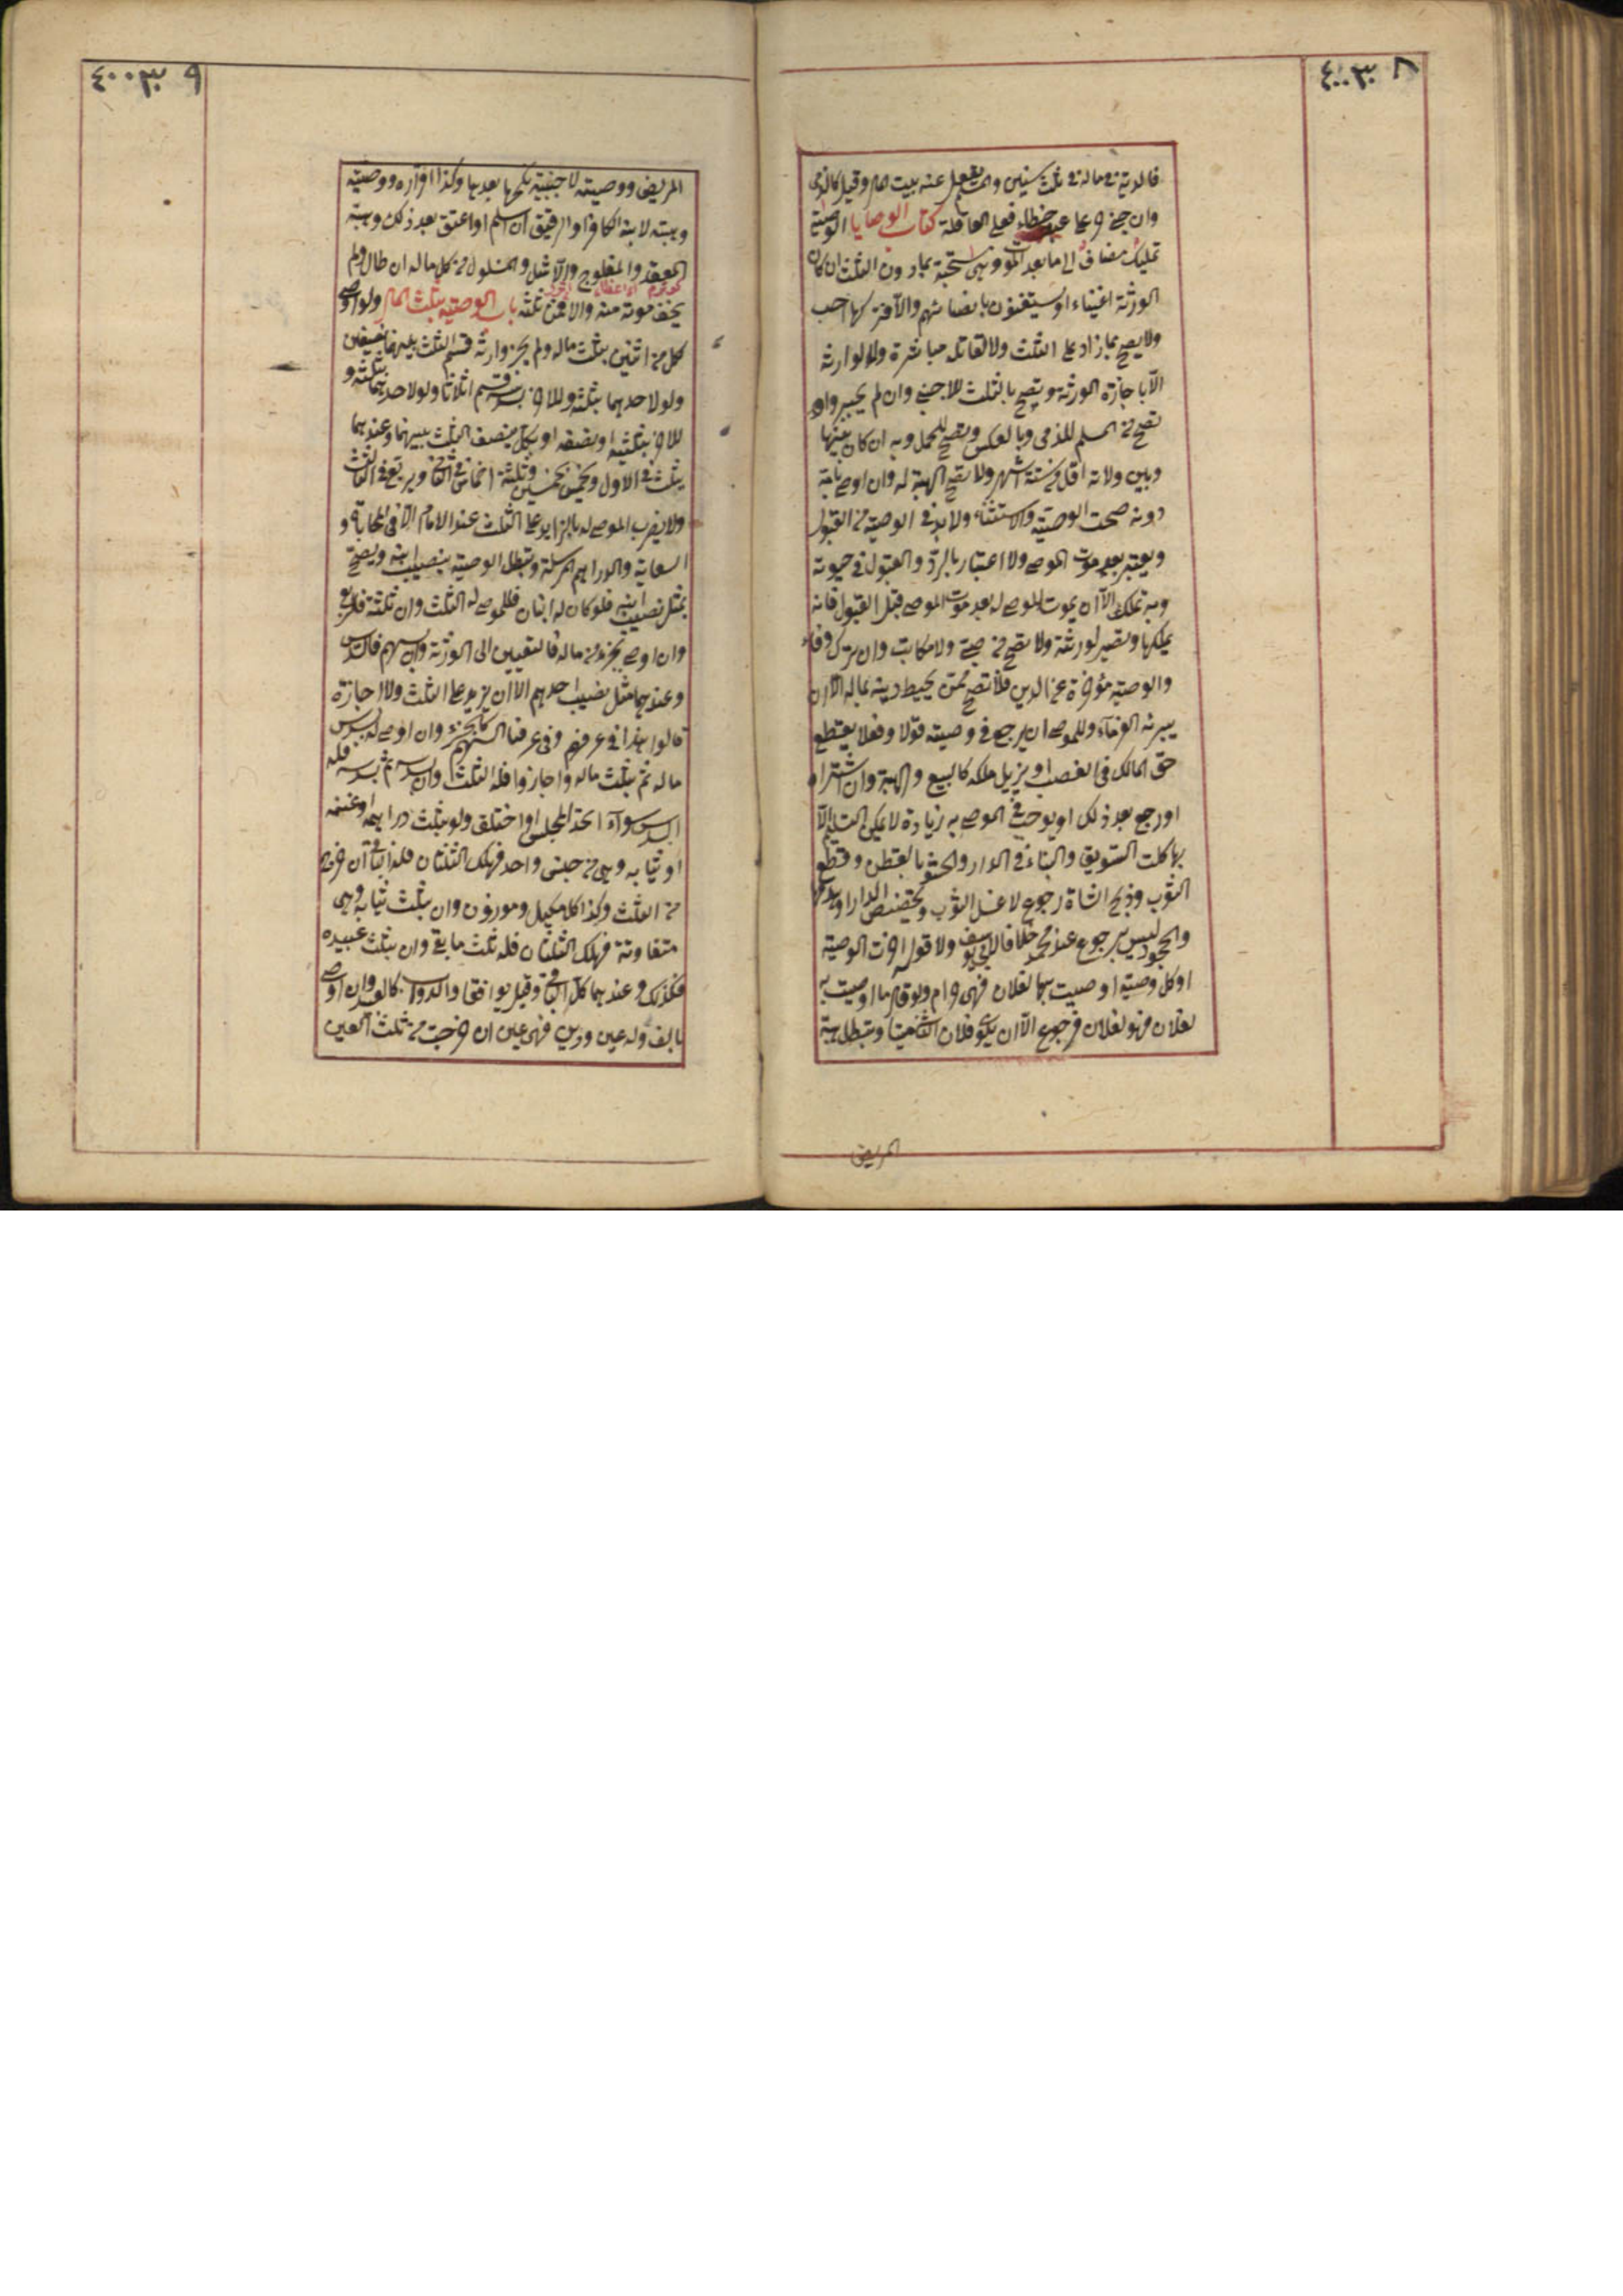 ٤٠٠٣٠ ٨
فالدية فى ماله فى ثلث سنين والمسلم يعقل عنه بيت المال وقيل كالذمى
وان جنى حر على عبد خطاء فعلى العاقلة كتاب الوصايا الوصية
تمليك مضاف الى ما بعد الموت وهى مستحبة بما دون الثلث ان كان
الورثة اغنياء او يستغنون بانصبائهم والا فتركها احب
ولا يصح بما زاد على الثلث ولا لقاتله مباشرة ولا لوارثه
الا باجازة الورثة ويصح بالثلث للاجنبى وان لم يجيزوا و
تصح من المسلم للذمى وبالعكس وتصح للحمل وبه ان كان بينها
وبين ولادته اقل من ستة اشهر ولا تصح الهبة له وان اوصى بامة
دونه صحت الوصية والاستثناء ولا بد فى الوصية من القبول
ويعتبر بعد موت الموصى ولا اعتبار بالرد والقبول فى حيوته
وبه تملك الا ان يموت الموصى له بعد موت الموصى قبل القبول فانه
يملكها وتصير لورثته ولا تصح من صبى ولا مكاتب وان ترك وفاء
والوصية مؤخرة عن الدين فلا تصح ممن يحيط دينه بماله الا ان
يبرئه الغرماء وللموصى ان يرجع فى وصيته قولا وفعلا يقطع
حق المالك فى الغصب او يزيل ملكه كالبيع والهبة وان اشتراه
او رجع بعد ذلك او يوجب فى الموصى به زيادة لا يمكن التسليم الا
بها كلت السويق والبناء فى الدار والحشو بالقطن وقطع
الثوب وذبح الشاة رجوع لا غسل الثوب وتجصيص الدار او هدمها
والجحود ليس برجوع عند محمد خلافا لابى يوسف ولا قوله اخرت الوصية
او كل وصية اوصيت بها لفلان فهى حرام ولو قال ما اوصيت به
لفلان فهو لفلان فرجوع الا ان يكون فلان الثانى ميتا وتبطل هبة
المريض
٤٠٠٣٠ ٩
المريض ووصيته لاجنبية نكحها بعدها وكذا اقراره ووصيته
وهبته لابنه الكافر او الرقيق ان اسلم او اعتق بعد ذلك وهبة
المقعد والمفلوج والاشل والمسلول من كل ماله ان طال ولم
يخف موته منه والا فمن ثلثه باب الوصية بثلث المال ولو اوصى
لكل من اثنين بثلث ماله ولم يجز وارثه قسم الثلث بينهما نصفين
ولو لاحدهما بثلثه وللاخر بسدسه قسم اثلاثا ولو لاحدهما بثلثه و
للاخر بثلثيه او بنصفه او بكله ينصف الثلث بينهما وعندهما
يثلث فى الاول ويخمس خمسين وثلثة اخماس فى الثانى ويربع فى الثالث
ولا يضرب الموصى له بالزايد على الثلث عند الامام الا فى المحاباة و
السعاية والدراهم المرسلة وتبطل الوصية بنصيب ابنه ويصح
بمثل نصيب ابنه فلو كان له ابنان فللموصى له الثلث وان ثلثة فالربع
وان اوصى بجزء من ماله فالتعيين الى الورثة وان بسهم فالسدس
وعندهما مثل نصيب احدهم الا ان يزيد على الثلث ولا اجازة
قالوا هذا فى عرفهم وفى عرفنا السهم كالجزء وان اوصى له بسدس
ماله ثم بثلث ماله واجازوا فله الثلث وان بسدسه ثم بسدسه فله
السدس سواء اتحد المجلس او اختلف ولو بثلث دراهمه او غنمه
او ثيابه وهى من جنس واحد فهلك الثلثان فله الباقى ان خرج
من الثلث وكذا كل مكيل وموزون وان بثلث ثيابه وهى
متفاوتة فهلك الثلثان فله ثلث ما بقى وان بثلث عبيده
فكذلك وعندهما كل الباقى وقيل يوافقا والدواب كالعبد وان اوصى
بالف وله عين ودين فهى عين ان خرجت من ثلث العين